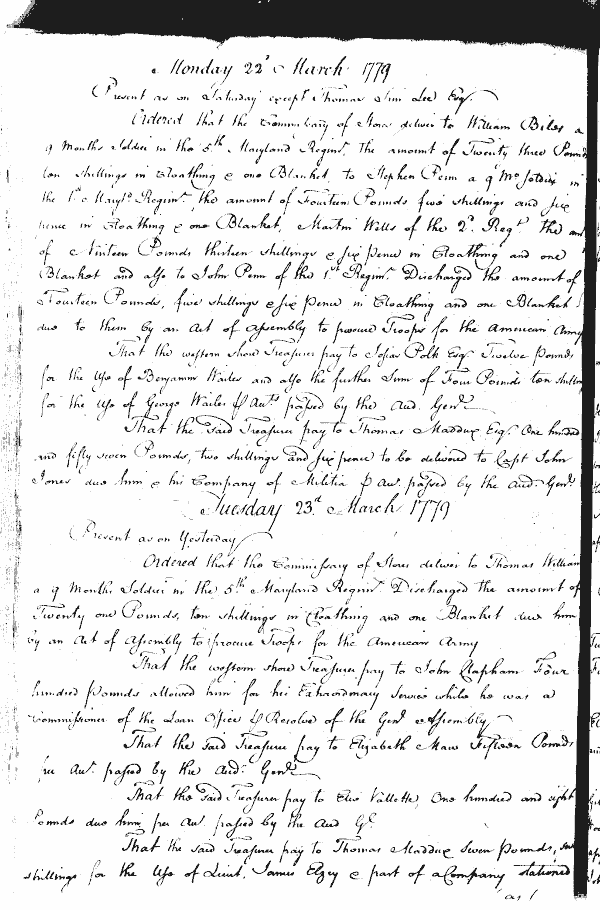 Monday 22d March 1779
Present as on Saturday except Thomas Sim Lee Esqr.
Ordered that the Commissary of Stores deliver to William Biles a
9 Months Soldier in the 5th Maryland Regimt. the amount of Twenty three Pounds
ten shillings in Cloathing & one Blanket, to Stephen Penn a 9 Mo. Soldier in
the 1st Maryld. Regimt. the amount of Fourteen Pounds five shillings and six
pence in Cloathing & one Blanket, Martin Wills of the 2d. Regt. the am
of Nineteen Pounds thirteen shillings & six pence in Cloathing and one
Blanket and also to John Penn of the 1st Regimt. Discharged the amount of
Fourteen Pounds, five shillings & six pence in Cloathing and one Blanket
due to them by an Act of Assembly to procure Troops for the American Army
That the western shore Treasurer pay to Josias Polk Esqr. Twelve Pounds
for the Use of Benjamin Wailes and also the further Sum of Four Pounds ten shillin
for the Use of George Wailes P Accts. passed by the Aud. Genl.
That the said Treasurer pay to Thomas Maddux Esqr. One hundred
and fifty seven Pounds, two shillings and six pence to be delivered to Capt John
Jones due him & his Company of Militia P Acc. passed by the Aud. Genl.
Tuesday 23d March 1779
Present as on Yesterday
Ordered that the Commissary of Stores deliver to Thomas William
a 9 Months Soldier in the 5th Maryland Regimt. Discharged the amount of
Twenty one Pounds, ten shillings in Cloathing and one Blanket due him
by an Act of Assembly to procure Troops for the American Army
That the western shore Treasurer pay to John Clapham Four
hundred Pounds allowed him for his Extraordinary Service while he was a
Commissioner of the Loan Office P Resolve of the Genl Assembly
That the said Treasurer pay to Elizabeth Maw Fifteen Pounds
per Acc. passed by the Aud. Genl.
That the said Treasurer pay to Elie Vallette One hundred and eight
Pounds due him per Acc. passed by the Aud Gl.
That the said Treasurer pay to Thomas Maddux Seven Pounds,
shillings for the Use of Lieut. James Elzey & part of a Company stationed
as